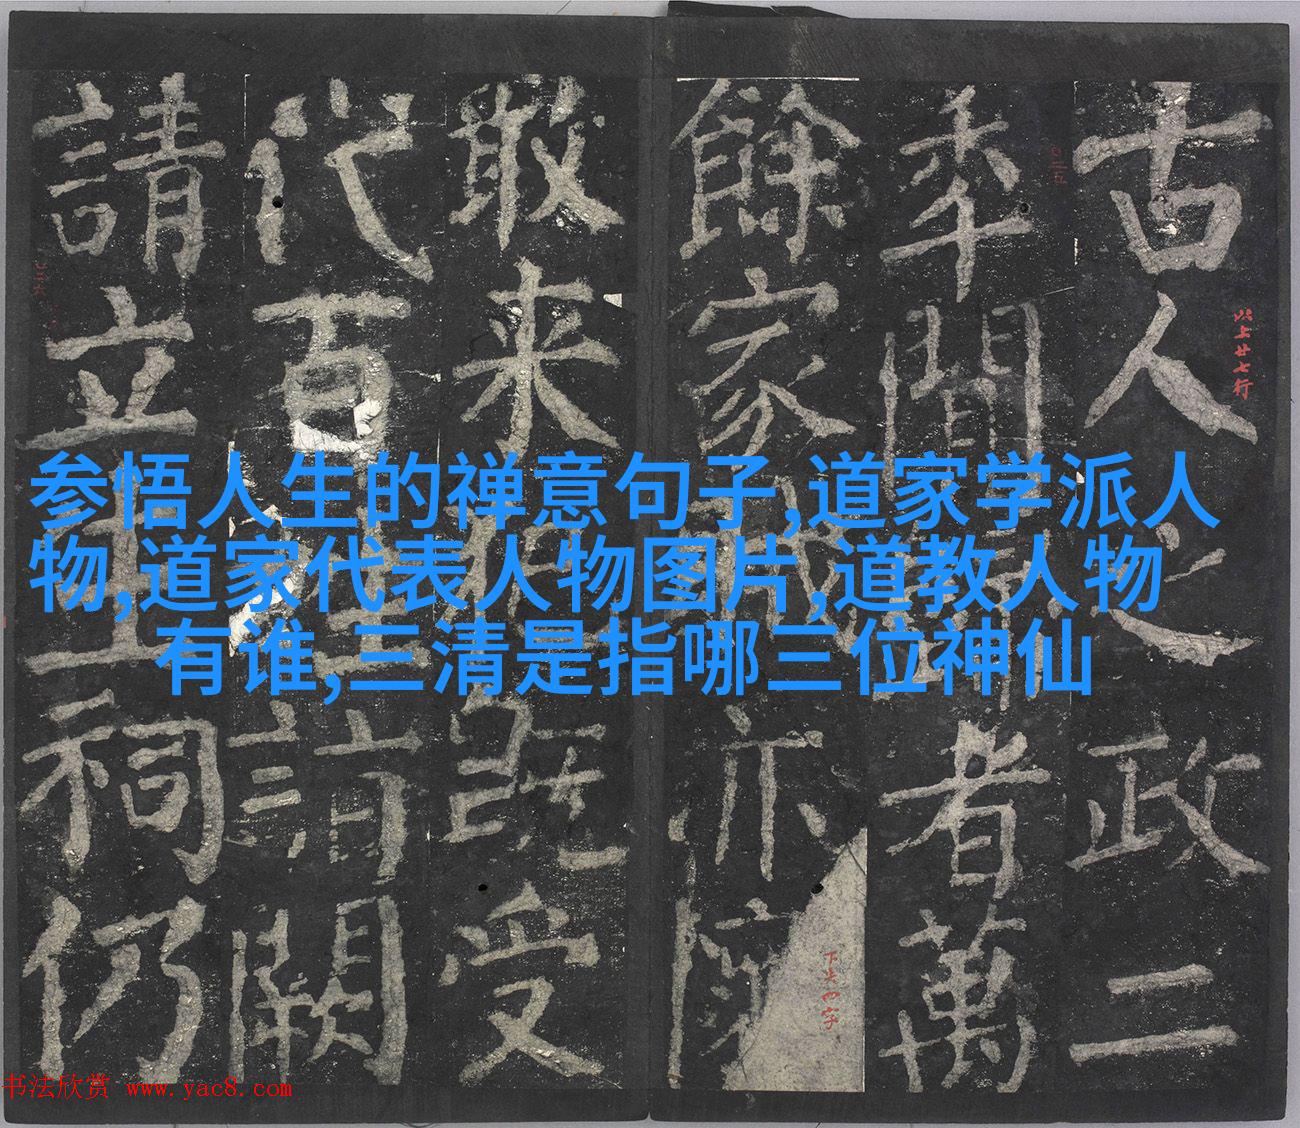 古人之政二
年間者萬
餘家亦
敢来犯既受
代百詣闕
請立生祠仍
以上廿七行
参悟人生的禅意句子,道家学派人
物,道家代表人物图片,道教人物
有谁,三清是指哪三位神仙
书法欣赏 www.yac8.com